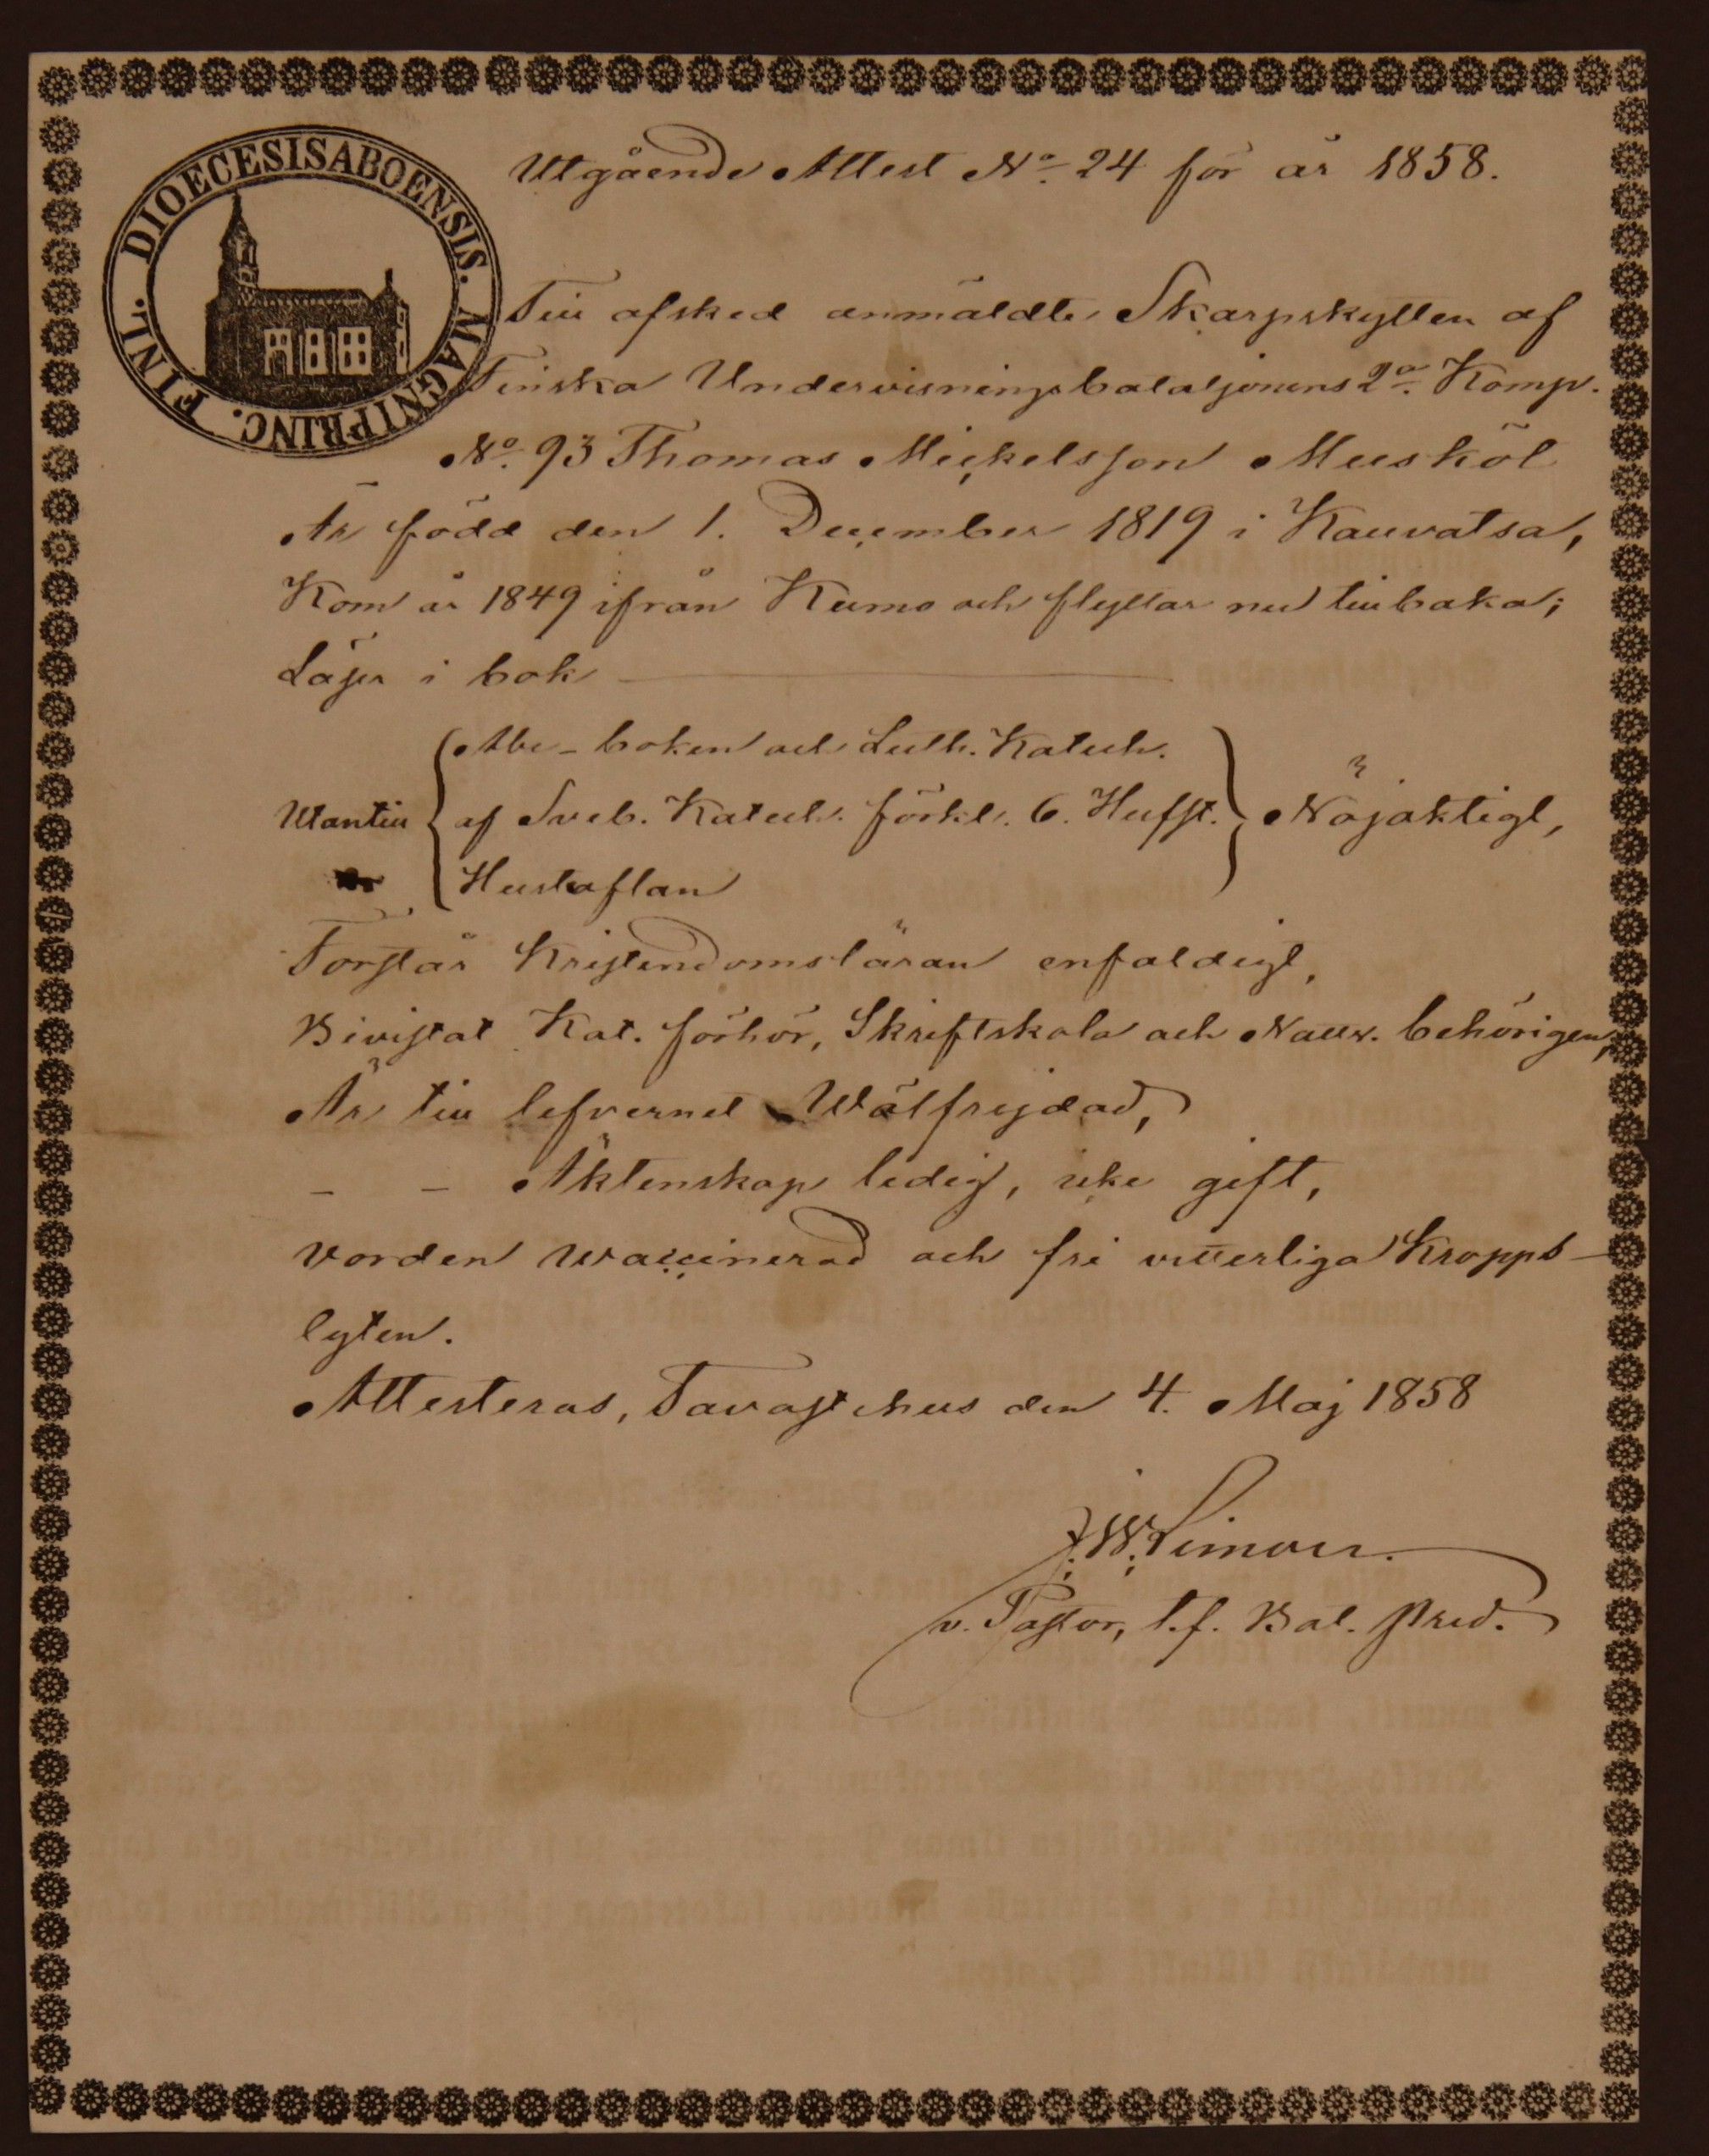 DIOECESISABOENSIS. MAGNIPRINC. FINL.
Utgående Attest No. 24 för år 1858.
Till afsked anmäldte Skarpskytten af
Finska Undervisningsbataljonens 2a. Komp.
No. 93 Thomas Mickelsson Musköt
Är född den 1. December 1819 i Kauvatsa,
Kom år 1849 ifrån Kumo och flyttar nu tillbaka;
Läser i bok
Abc-boken och Luth. Katech.
Utantill af Sveb. Katech. förkl. 6. Hufst. Nöjaktigt,
Hustaflan
Förstår Kristendomsläran enfaldigt,
Bivistat Kat. förhör, Skriftskola och Nattv. behörigen,
Är till lefvernet Wälfrejdad,
- - Äktenskap ledig, icke gift,
vorden waccinerad och fri vitterliga Kropps-
lyten.
Attesteras, Tavastehus den 4. Maj 1858
J. W. Limón.
v. Pastor, t.f. Bat. Pred.